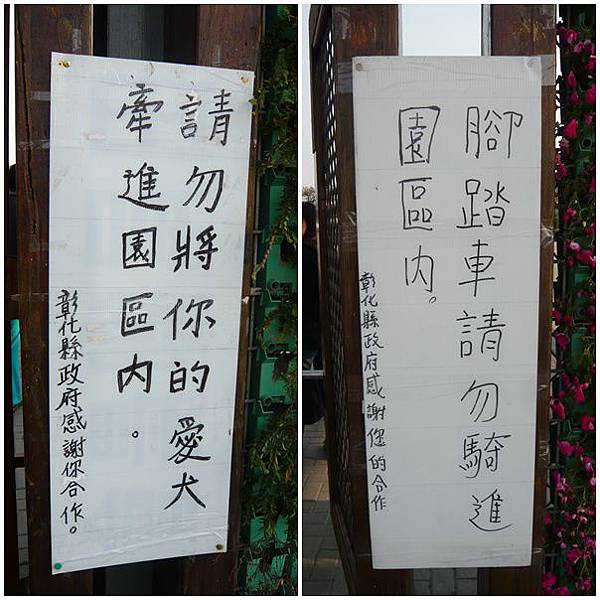 請勿將你的愛犬
牽進園區內。
彰化縣政府感謝你合作。
腳踏車請勿騎進
園區內。
彰化縣政府感謝您的合作